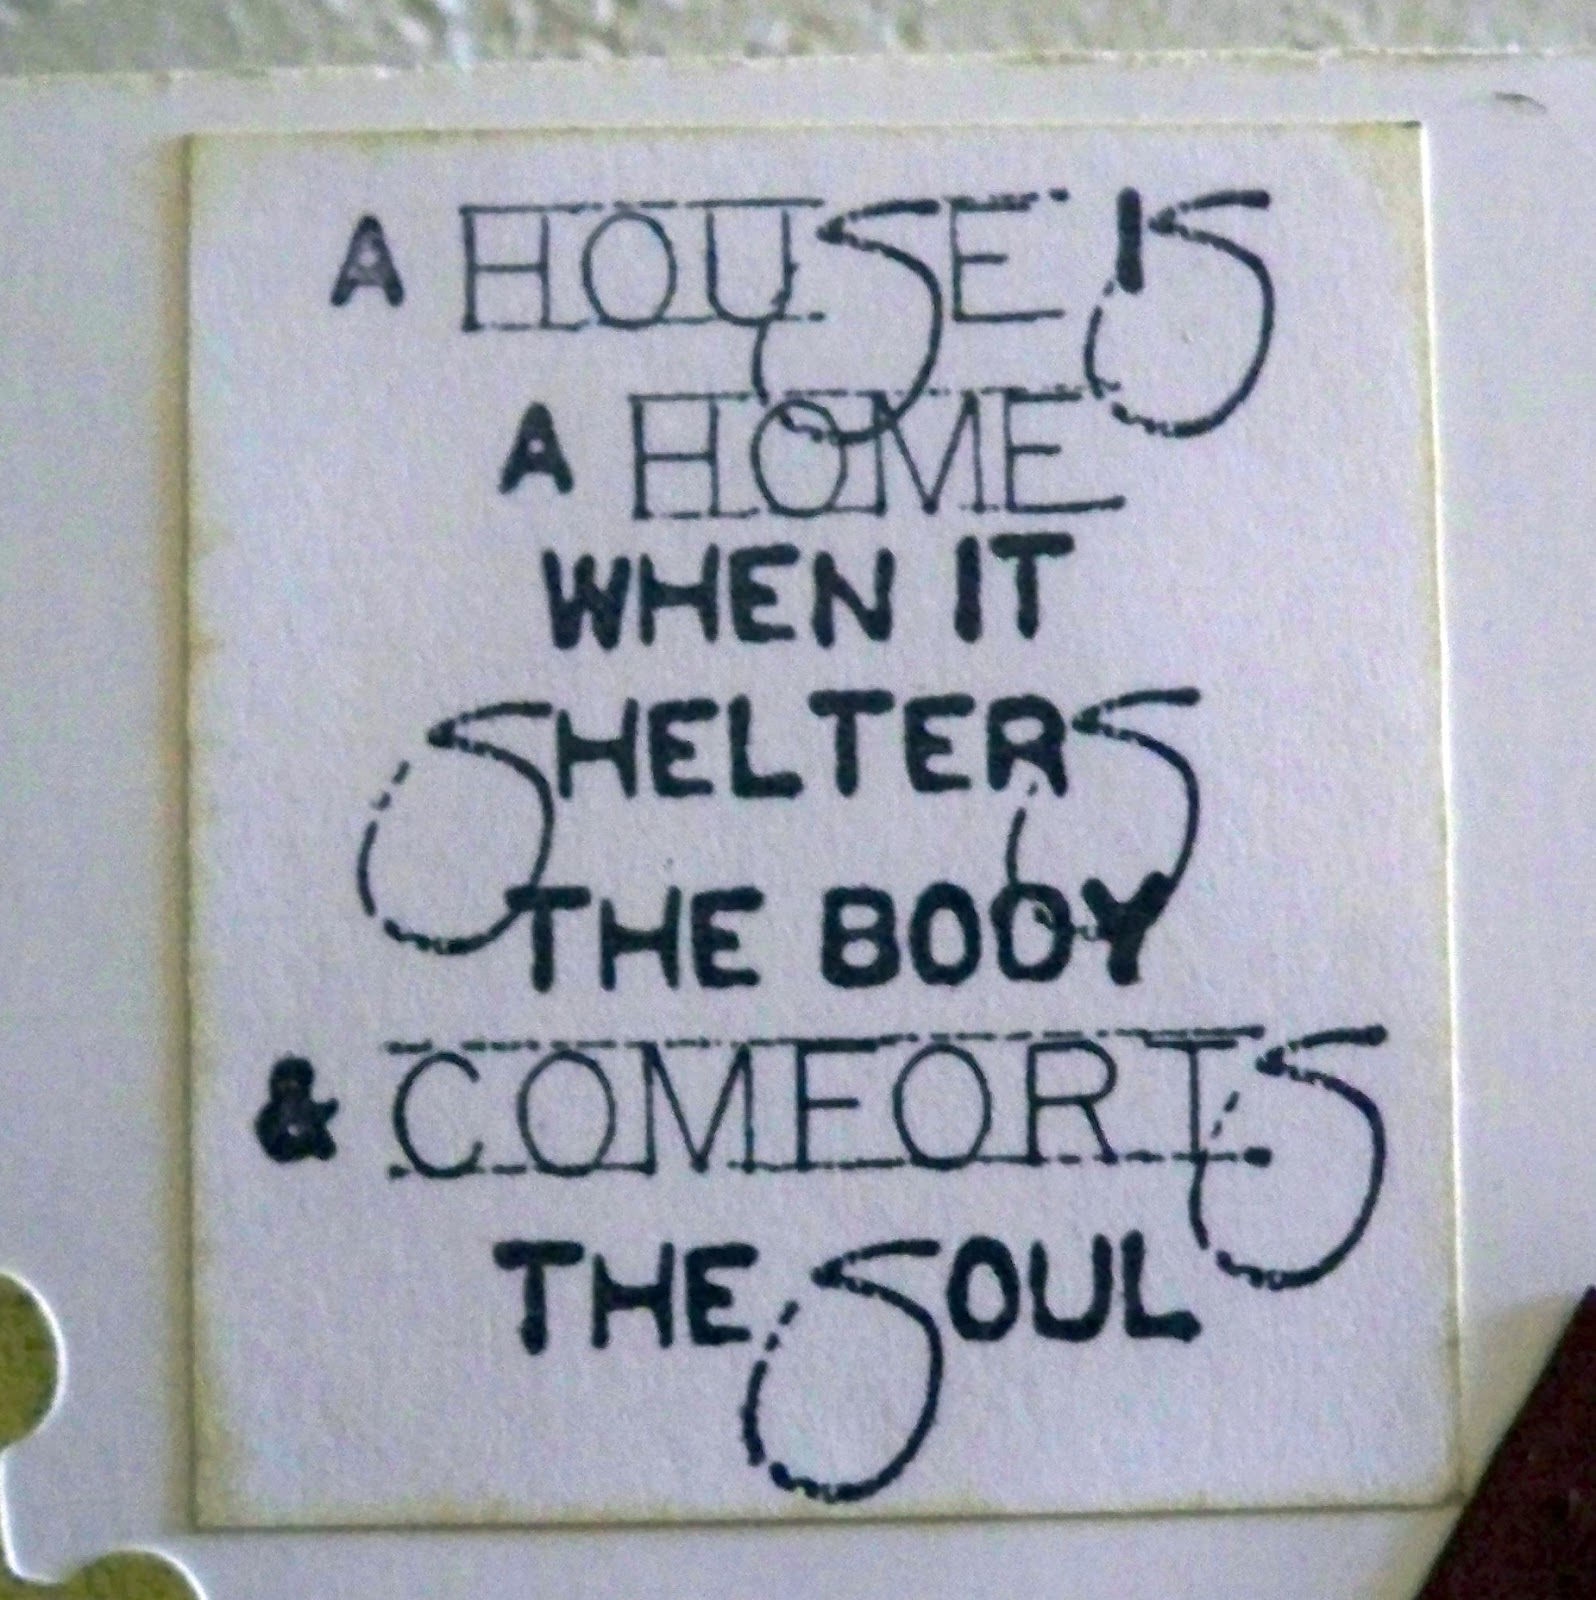 A HOUSE IS
A HOME
WHEN IT
SHELTERS
THE BODY
& COMFORTS
THE SOUL